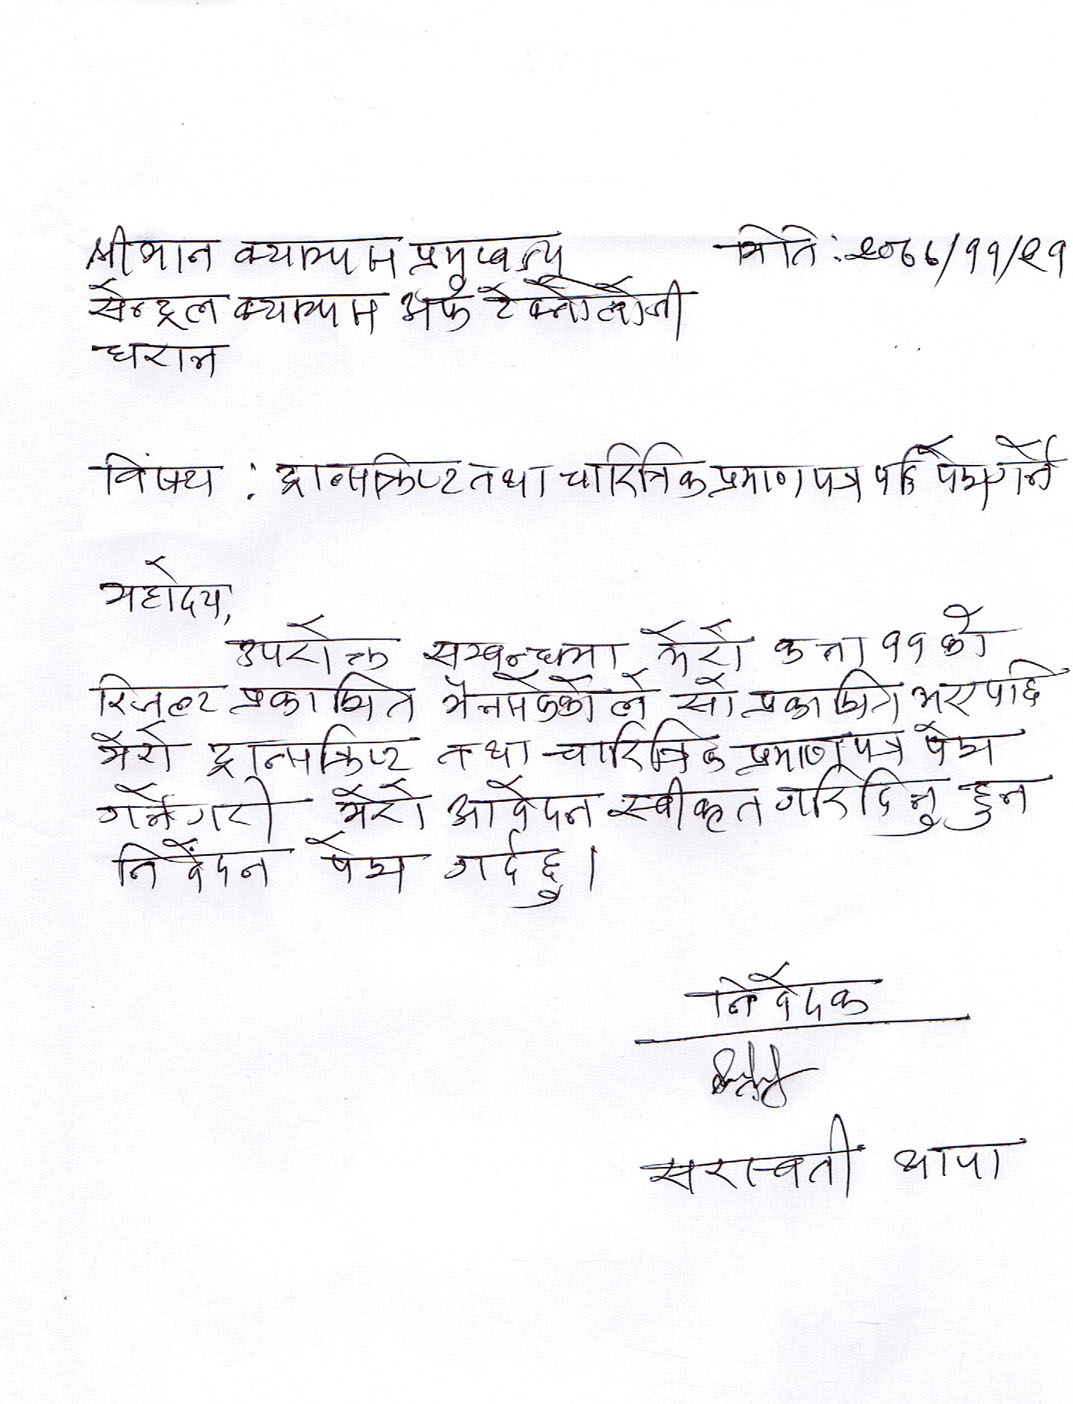 श्रीमान क्याम्पस प्रमुखज्यू मिति : २०६६/११/२१
सेन्ट्रल क्याम्पस अफ टेक्नोलोजी
धरान
विषय : ट्रान्सक्रिप्ट तथा चारित्रिक प्रमाण पत्र पछि पेश गर्ने
महोदय,
उपरोक्त सम्बन्धमा मेरो कक्षा ११ को
रिजल्ट प्रकाशित भैनसकेकोले सो प्रकाशित भए पछि
मेरो ट्रान्सक्रिप्ट तथा चारित्रिक प्रमाण पत्र पेश
गर्नेगरी मेरो आवेदन स्वीकृत गरिदिनु हुन
निवेदन पेश गर्दछु ।
निवेदक
सरस्वती थापा